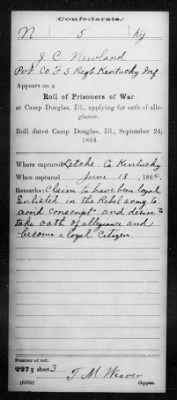 Confederate.
N 5 Ky
J. C. Newland
Pvt Co E 5 Regt Kentucky Inf
Appears on a
Roll of Prisoners of War
at Camp Douglas, Ill., applying for oath of alle-
giance.
Roll dated Camp Douglas, Ill., September 24,
1864.
Where captured Letche Co Kentucky
When captured June 18, 1864.
Remarks: Claim to have been loyal
Enlisted in the Rebel army to
avoid conscript and desire to
take oath of allegiance and
become a loyal Citizen
Number of roll:
227; sheet 3
T. M. Weaver
Copyist.